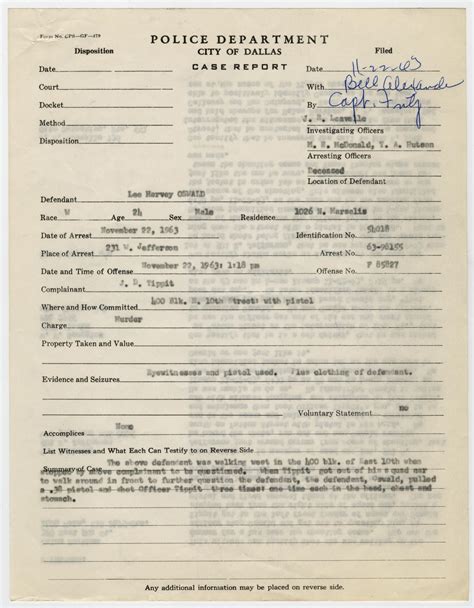 Form No. CPS—GF—479
POLICE DEPARTMENT
Disposition CITY OF DALLAS Filed
Date CASE REPORT Date 11-22-63
Court With Bill Alexander
Docket By Capt. Fritz
Method J. R. Leavelle
Investigating Officers
Disposition M. N. McDonald, T. A. Hutson
Arresting Officers
Deceased
Location of Defendant
Defendant Lee Harvey OSWALD
Race W Age 24 Sex Male Residence 1026 N.
Date of Arrest November 22, 1963 Identification No. 54018
Place of Arrest 231 W. Jefferson Arrest No. 63-98155
Date and Time of Offense November 22, 1963: 1:18 pm Offense No. F 85827
Complainant J. D. Tippit
Where and How Committed 400 Blk. E. 10th Street: with pistol
Charge Murder
Property Taken and Value
Evidence and Seizures Eyewitnesses and pistol used. Plus clothing of defendant.
Voluntary Statement no
Accomplices None
List Witnesses and What Each Can Testify to on Reverse Side
Summary of Case The above defendant was walking west in the 400 blk. of East 10th when
stopped by above complainant to be questioned. When Tippit got out of his squad car
to walk around in front to further question the defendant, the defendant, Oswald, pulled
a .38 pistol and shot Officer Tippit three times: one time each in the head, chest and
stomach.
Any additional information may be placed on reverse side.